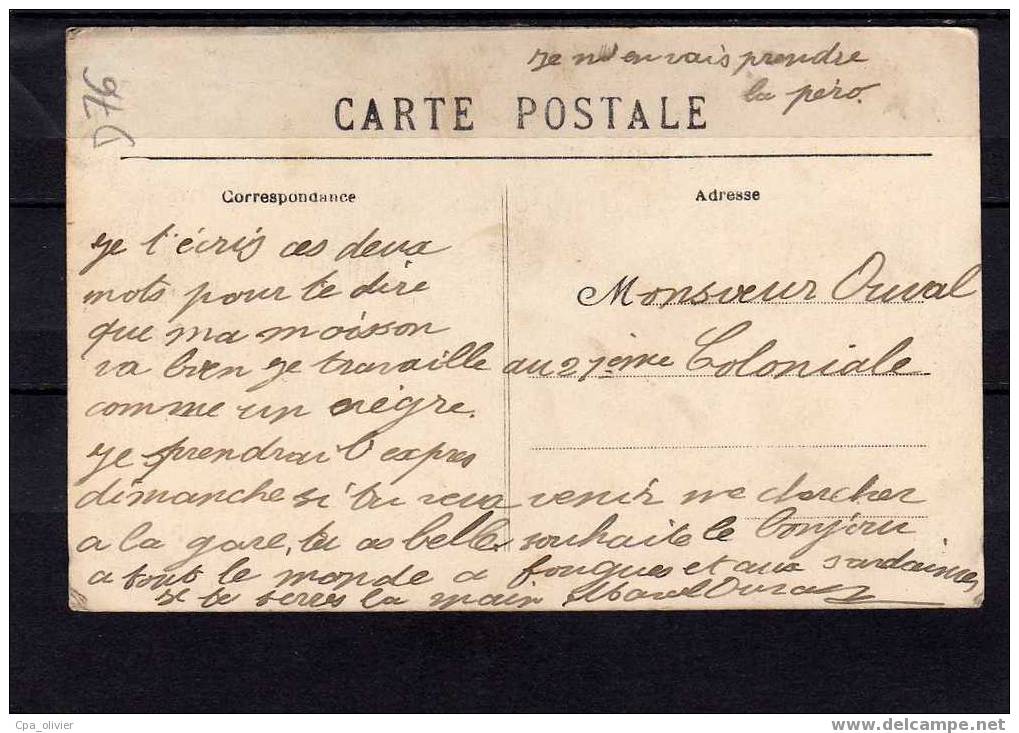 Je m'en vais prendre
la péro.
D76
CARTE POSTALE
Correspondance
Adresse
Je t'écris ces deux
mots pour te dire
que ma moisson
va bien je travaille
comme un nègre.
Je prendrai l'expres
dimanche si tu veux venir me chercher
a la gare, tu as belle souhaite le bonjour
a tout le monde a fouques et aux sardaines
Je te serres la main
Monsieur Duval
au 27 ième Coloniale
Cpa_olivier
www.delcampe.net